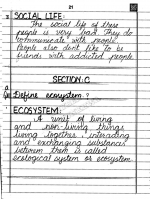 21
SOCIAL LIFE:
The social life of these
people is very bad. They do
communicate with people.
People also dont like to be
friends with addicted people.
SECTION:C
Define ecosystem?
ECOSYSTEM:
A unit of living
and non-living things
living together, interacting
and exchanging substances
between them is called
ecological system or ecosystem.